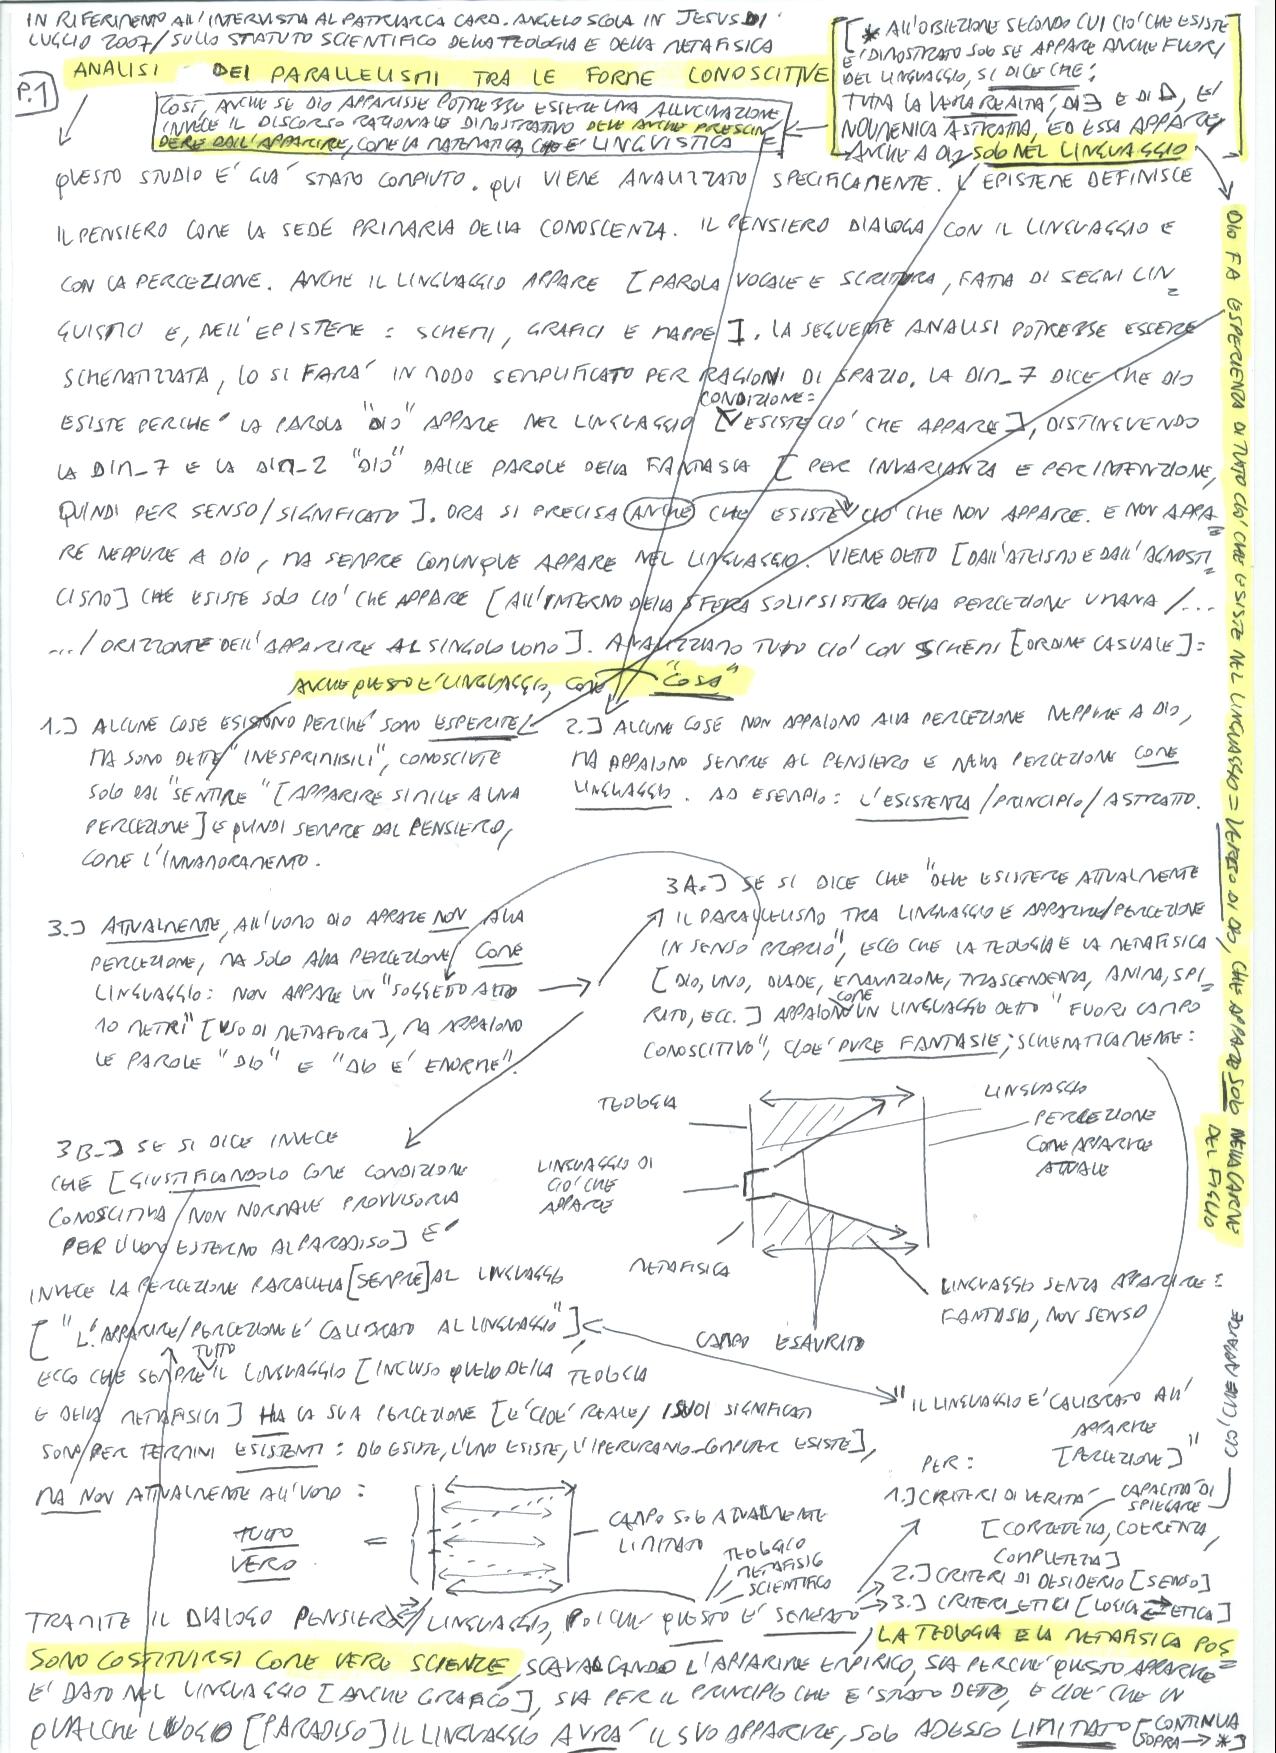 IN RIFERIMENTO ALL'INTERVISTA AL PATRIARCA CARD. ANGELO SCOLA IN JESUS DI
LUGLIO 2007/SULLO STATUTO SCIENTIFICO DELLA TEOLOGIA E DELLA METAFISICA
P.1
ANALISI DEI PARALLELISMI TRA LE FORME CONOSCITIVE
COSÌ, ANCHE SE DIO APPARISSE POTREBBE ESSERE UNA ALLUCINAZIONE
INVECE IL DISCORSO RAZIONALE DIMOSTRATIVO DEVE ANCHE PRESCIN
DERE DALL'APPARIRE, COME LA MATEMATICA, CHE E' LINGUISTICA
[* ALL'OBIEZIONE SECONDO CUI CIO' CHE ESISTE
E' DIMOSTRATO SOLO SE APPARE ANCHE FUORI
DEL LINGUAGGIO, SI DICE CHE:
TUTTA LA VERA REALTA', DI ∃ E DI Δ, E'
NOUMENICA ASTRATTA, ED ESSA APPARE
ANCHE A DIO SOLO NEL LINGUAGGIO
QUESTO STUDIO E' GIA' STATO COMPIUTO. QUI VIENE ANALIZZATO SPECIFICAMENTE. L'EPISTEME DEFINISCE
IL PENSIERO COME LA SEDE PRIMARIA DELLA CONOSCENZA. IL PENSIERO DIALOGA CON IL LINGUAGGIO E
CON LA PERCEZIONE. ANCHE IL LINGUAGGIO APPARE [PAROLA VOCALE E SCRITTURA, FATTA DI SEGNI LIN=
GUISTICI E, NELL'EPISTEME: SCHEMI, GRAFICI E MAPPE]. LA SEGUENTE ANALISI POTREBBE ESSERE
SCHEMATIZZATA, LO SI FARA' IN MODO SEMPLIFICATO PER RAGIONI DI SPAZIO. LA DIM_7 DICE CHE DIO
CONDIZIONE:
ESISTE PERCHE' LA PAROLA "DIO" APPARE NEL LINGUAGGIO [ESISTE CIO' CHE APPARE], DISTINGUENDO
LA DIM_7 E LA DIM_2 "DIO" DALLE PAROLE DELLA FANTASIA [PER INVARIANZA E PER INTENZIONE,
QUINDI PER SENSO/SIGNIFICATO]. ORA SI PRECISA ANCHE CHE ESISTE CIO' CHE NON APPARE. E NON APPA=
RE NEPPURE A DIO, MA SEMPRE COMUNQUE APPARE NEL LINGUAGGIO. VIENE DETTO [DALL'ATEISMO E DALL'AGNOSTI=
CISMO] CHE ESISTE SOLO CIO' CHE APPARE [ALL'INTERNO DELLA SFERA SOLIPSISTICA DELLA PERCEZIONE UMANA /...
.../ORIZZONTE DELL'APPARIRE AL SINGOLO UOMO]. ANALIZZIAMO TUTTO CIO' CON SCHEMI [ORDINE CASUALE]:
ANCHE QUESTO E' LINGUAGGIO, COME "COSA"
1.] ALCUNE COSE ESISTONO PERCHE' SONO ESPERITE,
MA SONO DETTE "INESPRIMIBILI", CONOSCIUTE
SOLO DAL "SENTIRE" [APPARIRE SIMILE A UNA
PERCEZIONE] E QUINDI SEMPRE DAL PENSIERO,
COME L'INNAMORAMENTO.
2.] ALCUNE COSE NON APPAIONO ALLA PERCEZIONE NEPPURE A DIO,
MA APPAIONO SEMPRE AL PENSIERO E NELLA PERCEZIONE COME
LINGUAGGIO. AD ESEMPIO: L'ESISTENZA/PRINCIPIO/ASTRATTO.
3.] ATTUALMENTE, ALL'UOMO DIO APPARE NON ALLA
PERCEZIONE, MA SOLO ALLA PERCEZIONE COME
LINGUAGGIO: NON APPARE UN "SOGGETTO ALTO
10 METRI" [USO DI METAFORA], MA APPAIONO
LE PAROLE "DIO" E "DIO E' ENORME".
3A.] SE SI DICE CHE "DEVE ESISTERE ATTUALMENTE
IL PARALLELISMO TRA LINGUAGGIO E APPARIRE/PERCEZIONE
IN SENSO PROPRIO", ECCO CHE LA TEOLOGIA E LA METAFISICA
[DIO, UNO, DIADE, EMANAZIONE, TRASCENDENZA, ANIMA, SPI=
RITO, ECC.] APPAIONO COME UN LINGUAGGIO DETTO "FUORI CAMPO
CONOSCITIVO", CIOE' PURE FANTASIE, SCHEMATICAMENTE:
TEOLOGIA
LINGUAGGIO DI
CIO' CHE
APPARE
METAFISICA
LINGUAGGIO
PERCEZIONE
COME APPARIRE
ATTUALE
LINGUAGGIO SENZA APPARIRE:
FANTASIA, NON SENSO
CAMPO ESAURITO
3B.] SE SI DICE INVECE
CHE [GIUSTIFICANDOLO COME CONDIZIONE
CONOSCITIVA NON NORMALE PROVVISORIA
PER L'UOMO ESTERNO AL PARADISO] E'
INVECE LA PERCEZIONE PARALLELA [SEMPRE] AL LINGUAGGIO
["L'APPARIRE/PERCEZIONE E' CALIBRATO AL LINGUAGGIO"],
ECCO CHE SEMPRE TUTTO IL LINGUAGGIO [INCLUSO QUELLO DELLA TEOLOGIA
E DELLA METAFISICA] HA LA SUA PERCEZIONE [E' CIOE' REALE/I SUOI SIGNIFICATI
SONO PER TERMINI ESISTENTI: DIO ESISTE, L'UNO ESISTE, L'IPERURANIO_COMPUTER ESISTE],
MA NON ATTUALMENTE ALL'UOMO:
TUTTO
VERO
=
CAMPO SOLO ATTUALMENTE
LIMITATO
TEOLOGICO
METAFISICO
SCIENTIFICO
"IL LINGUAGGIO E' CALIBRATO ALL'
APPARIRE
[PERCEZIONE]"
PER:
1.] CRITERI DI VERITA'
CAPACITA' DI
SPIEGARE
[CORRETTEZZA, COERENZA,
COMPLETEZZA]
2.] CRITERI DI DESIDERIO [SENSO]
3.] CRITERI_ETICI [LOGICA → ETICA]
TRAMITE IL DIALOGO PENSIERO/LINGUAGGIO, POICHE' QUESTO E' SENSATO
, LA TEOLOGIA E LA METAFISICA POS=
SONO COSTITUIRSI COME VERE SCIENZE, SCAVALCANDO L'APPARIRE EMPIRICO, SIA PERCHE' QUESTO APPARIRE
E' DATO NEL LINGUAGGIO [ANCHE GRAFICO], SIA PER IL PRINCIPIO CHE E' STATO DETTO, E CIOE' CHE IN
QUALCHE LUOGO [PARADISO] IL LINGUAGGIO AVRA' IL SUO APPARIRE, SOLO ADESSO LIMITATO [CONTINUA
SOPRA → *]
DIO FA ESPERIENZA DI TUTTO CIO' CHE ESISTE NEL LINGUAGGIO = VERBO DI DIO, CHE APPARE SOLO NELLA CARNE
DEL FIGLIO